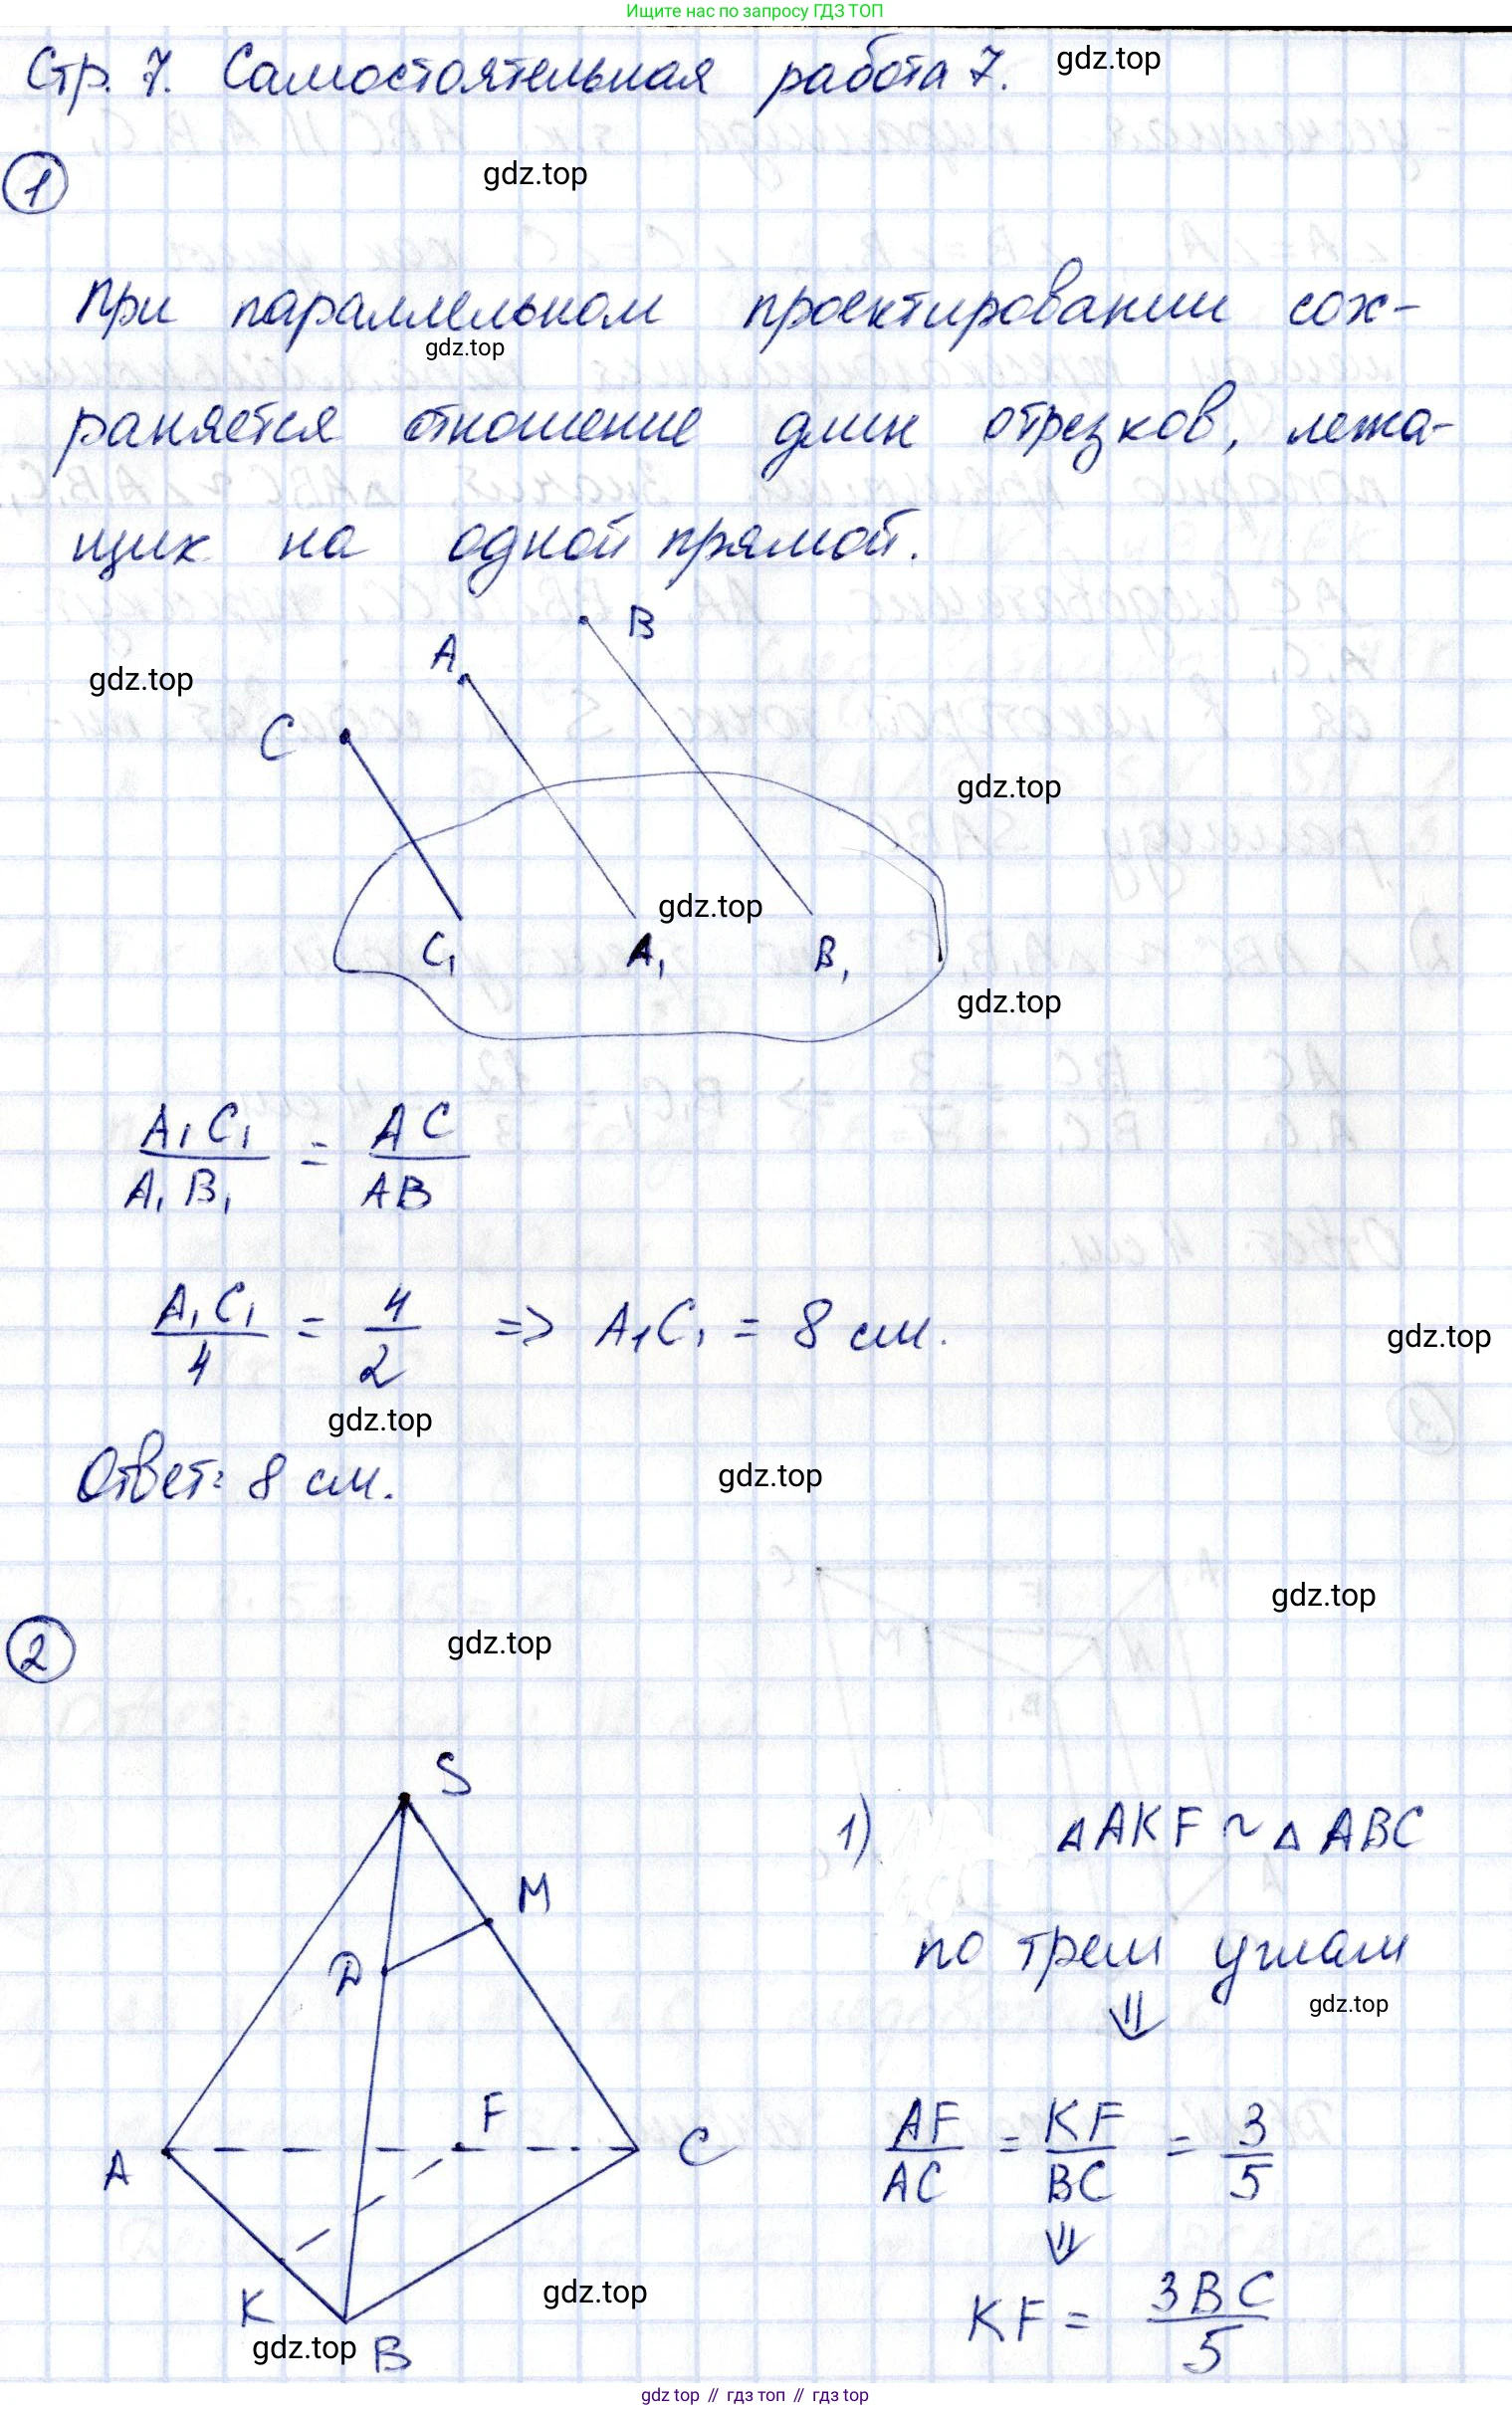 Ищите нас по запросу ГДЗ ТОП
Стр. 7. Самостоятельная работа 7.
gdz.top
1
gdz.top
При параллельном проектировании сох-
gdz.top
раняется отношение длин отрезков, лежа-
щих на одной прямой.
B
A
gdz.top
C
gdz.top
gdz.top
C₁ A₁ B₁
gdz.top
A₁C₁/A₁B₁ = AC/AB
A₁C₁/4 = 4/2 => A₁C₁ = 8 см.
gdz.top
gdz.top
Ответ: 8 см.
gdz.top
gdz.top
2
gdz.top
S
1) △AKF ~ △ABC
M
по трем углам
D
⇓
gdz.top
F
A C
AF/AC = KF/BC = 3/5
⇓
K
gdz.top
KF = 3BC/5
gdz.top
B
gdz top // гдз топ // гдз top